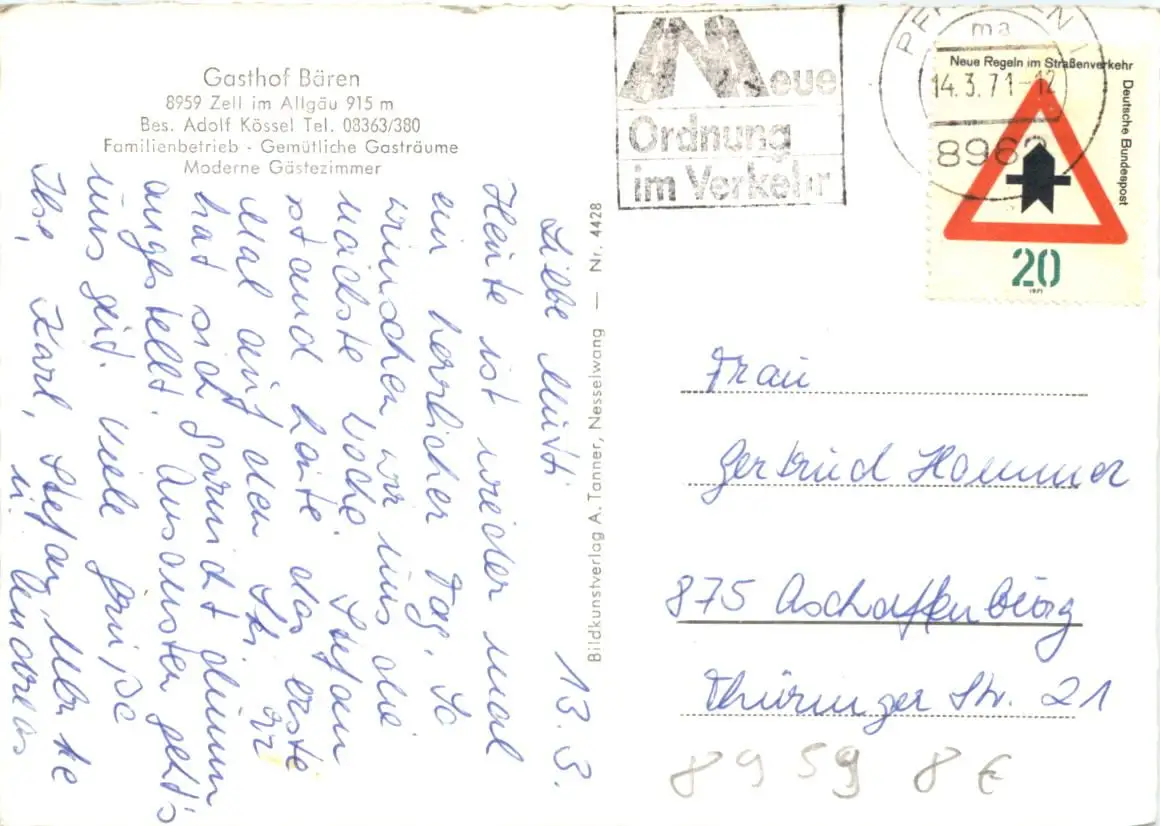 Gasthof Bären
8959 Zell im Allgäu 915 m
Bes. Adolf Kössel Tel. 08363/380
Familienbetrieb - Gemütliche Gasträume
Moderne Gästezimmer
13.3.
Liebe Mutti
Heute ist wieder mal
ein herrlicher Tag. So
wünschen wir uns die
nächste Woche. Stefan
stand heute das erste
Mal auf den Ski. Er
hat sich garnicht dumm
angestellt. Ansonsten geht's
uns gut. Viele Grüße
Ilse, Karl, Stefan,
u. Andreas
Bildkunstverlag A. Tanner, Nesselwang — Nr. 4428
Neue
Ordnung
im Verkehr
ma
14.3.71-12
896
Neue Regeln im Straßenverkehr
Deutsche Bundespost
20
1971
Frau
Gertrud Hammer
875 Aschaffenburg
Thüringer Str. 21
8959 8€